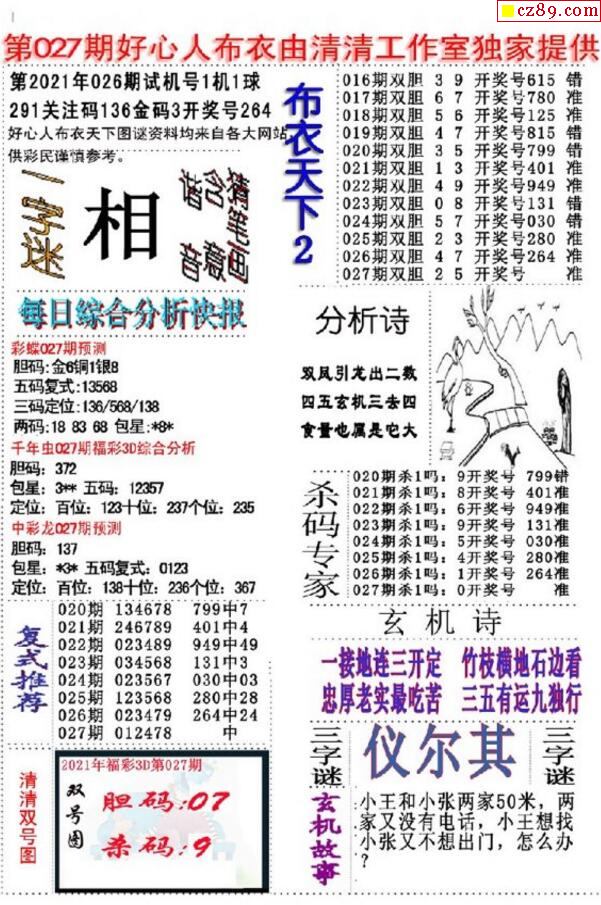 cz89.com
第027期好心人布衣由清清工作室独家提供
第2021年026期试机号1机1球
291关注码136金码3开奖号264
好心人布衣天下图谜资料均来自各大网站
供彩民谨慎参考。
一字迷
相
猜笔画
含意
谐音
布衣天下2
016期双胆 3 9 开奖号615 错
017期双胆 6 7 开奖号780 准
018期双胆 5 6 开奖号125 准
019期双胆 4 7 开奖号815 错
020期双胆 3 5 开奖号799 错
021期双胆 1 3 开奖号401 准
022期双胆 4 9 开奖号949 准
023期双胆 0 8 开奖号131 错
024期双胆 5 7 开奖号030 错
025期双胆 2 3 开奖号280 准
026期双胆 4 7 开奖号264 准
027期双胆 2 5 开奖号 准
每日综合分析快报
彩蝶027期预测
胆码:金6铜1银8
五码复式:13568
三码定位:136/568/138
两码:18 83 68 包星:*8*
千年虫027期福彩3D综合分析
胆码: 372
包星: 3** 五码: 12357
定位: 百位: 123十位: 237个位: 235
中彩龙027期预测
胆码: 137
包星: *3* 五码复式: 0123
定位: 百位: 138十位: 236个位: 367
分析诗
双凤引龙出二数
四五玄机三去四
食量也属是它大
杀码专家
020期杀1吗: 9开奖号 799错
021期杀1吗: 8开奖号 401准
022期杀1吗: 6开奖号 949准
023期杀1吗: 9开奖号 131准
024期杀1吗: 5开奖号 030准
025期杀1吗: 4开奖号 280准
026期杀1吗: 1开奖号 264准
027期杀1吗: 0开奖号 准
复式推荐
020期 134678 799中7
021期 246789 401中4
022期 023489 949中49
023期 034568 131中3
024期 023567 030中03
025期 123568 280中28
026期 023479 264中24
027期 012478 中
玄机诗
一接地连三开定 竹枝横地石边看
忠厚老实最吃苦 三五有运九独行
清清双号图
2021年福彩3D第027期
双号图
胆码:07
杀码:9
三字谜
仪尔其
三字谜
玄机故事
小王和小张两家50米，两
家又没有电话，小王想找
小张又不想出门，怎么办
？